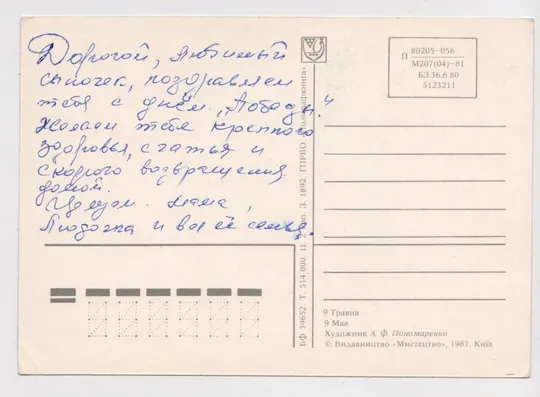 Дорогой, любимый
сыночек, поздравляем
тебя с днём „Победы."
Желаем тебе крепкого
здоровья, счастья и
скорого возвращения
домой.
Целуем. Мама,
Людочка и вся её семья.
БФ 59652. Т. 514.000. З. 1892. ГПРВО
П 80205-056
М207(04)-81
БЗ.36.6.80
5123211
9 Травня
9 Мая
Художник А. Ф. Пономаренко
© Видавництво «Мистецтво», 1981. Київ